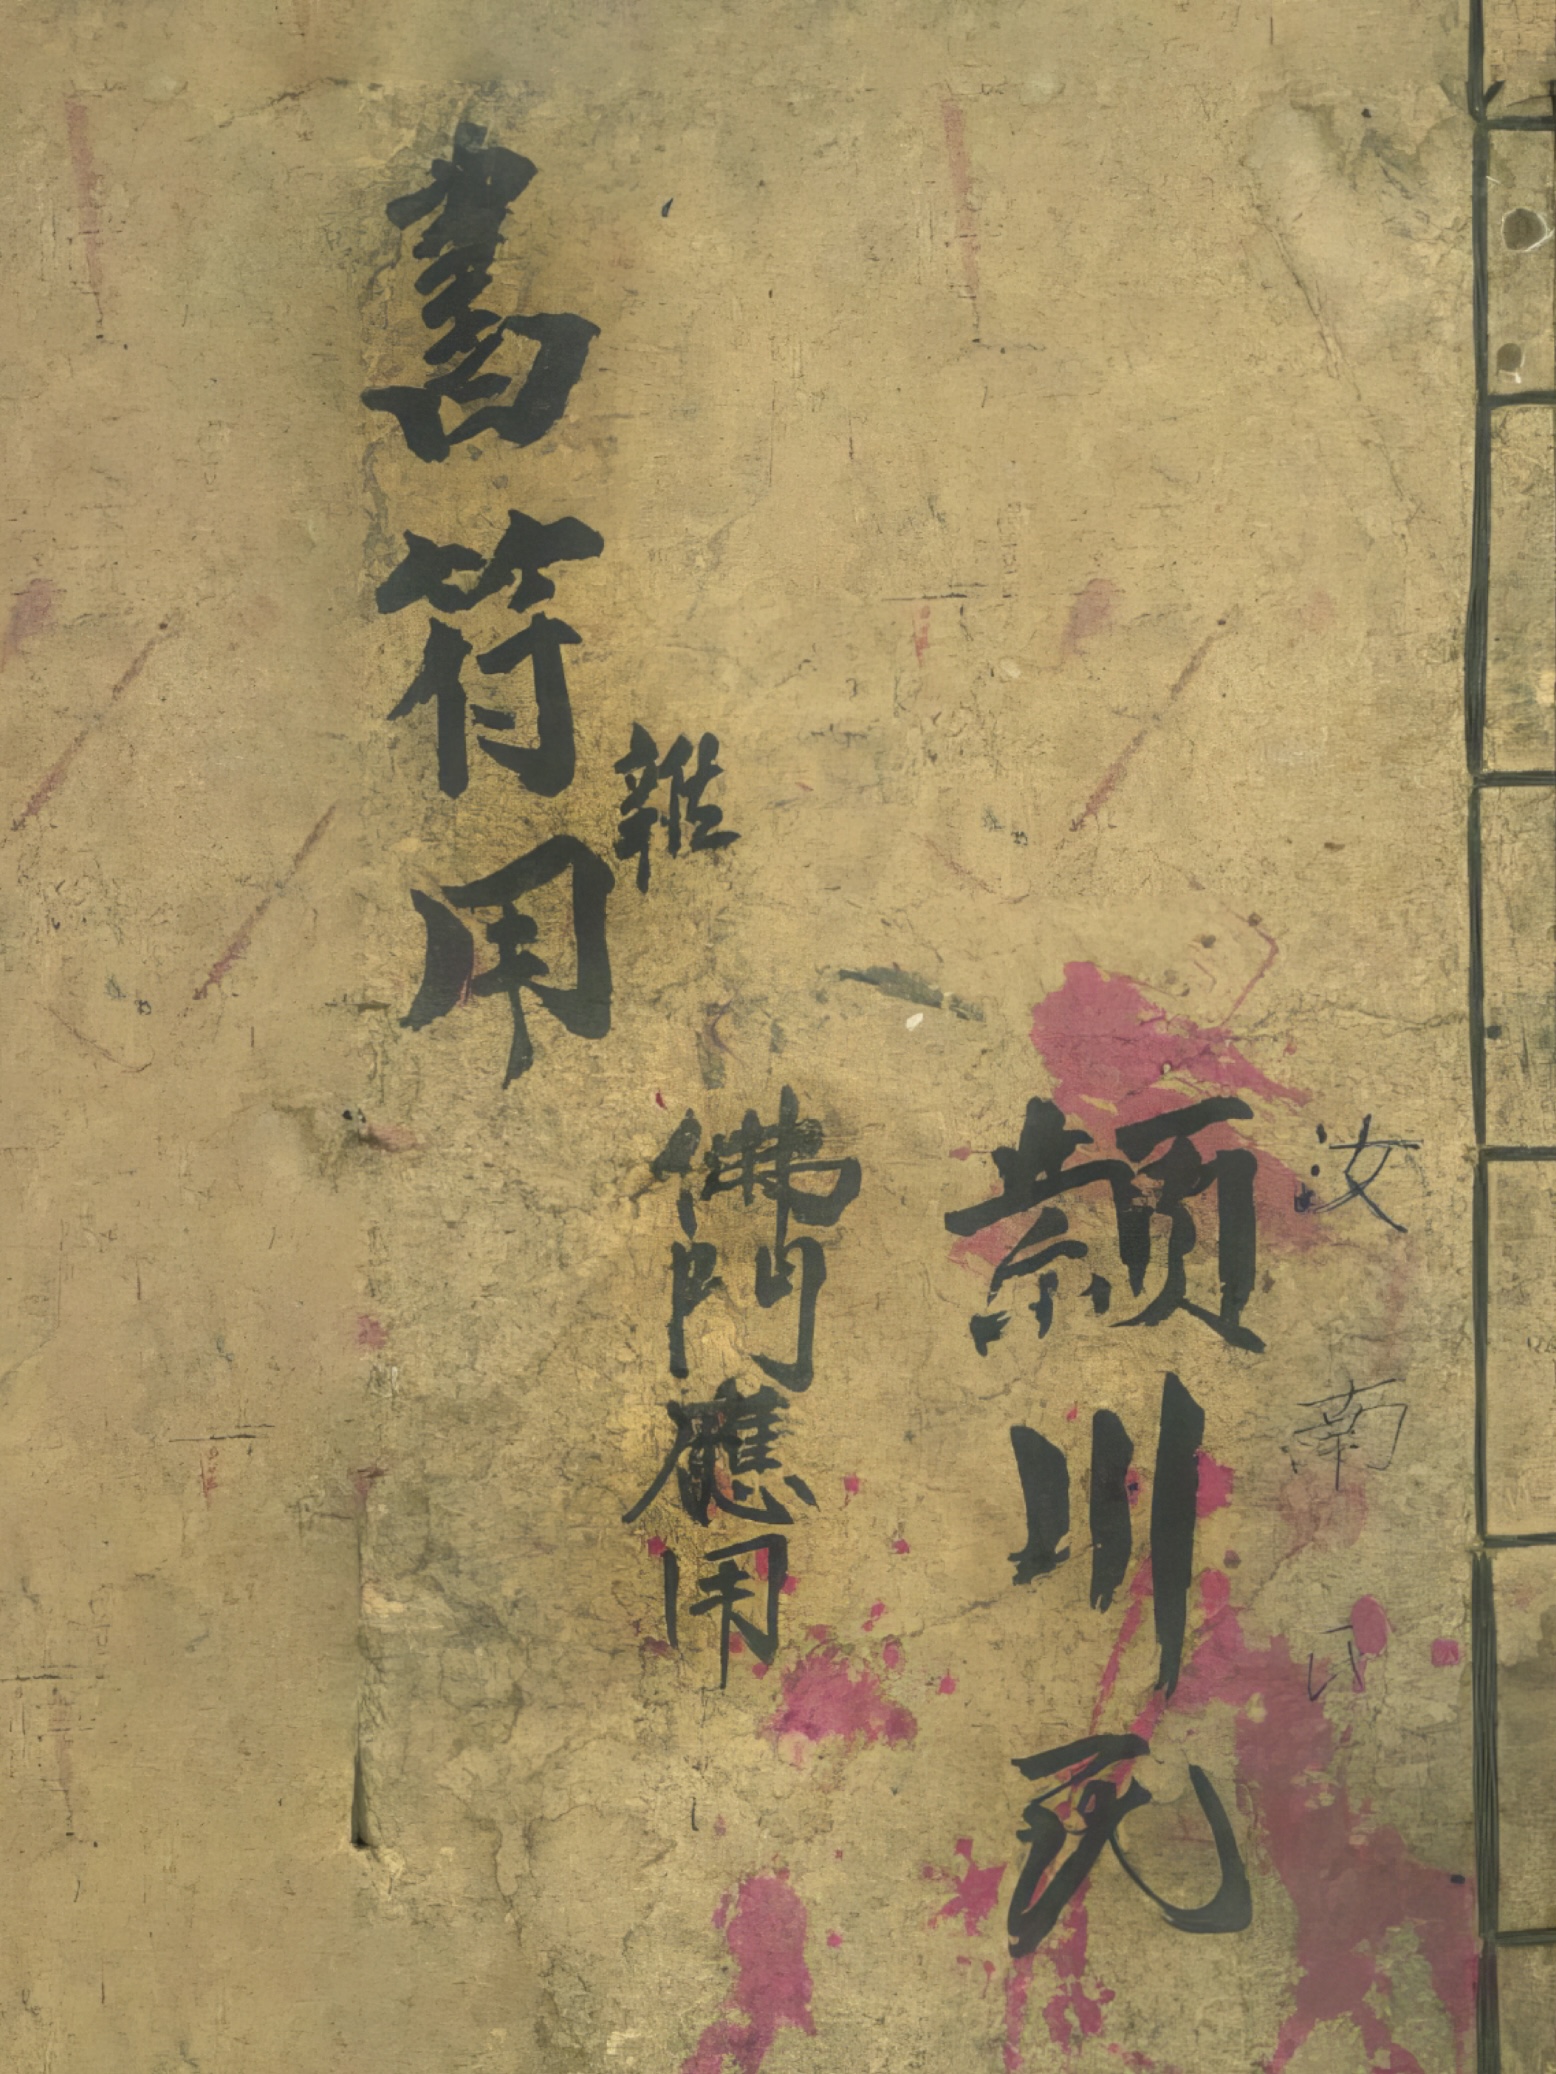 汝南氏
頴川氏
佛門應用
雜
書符用